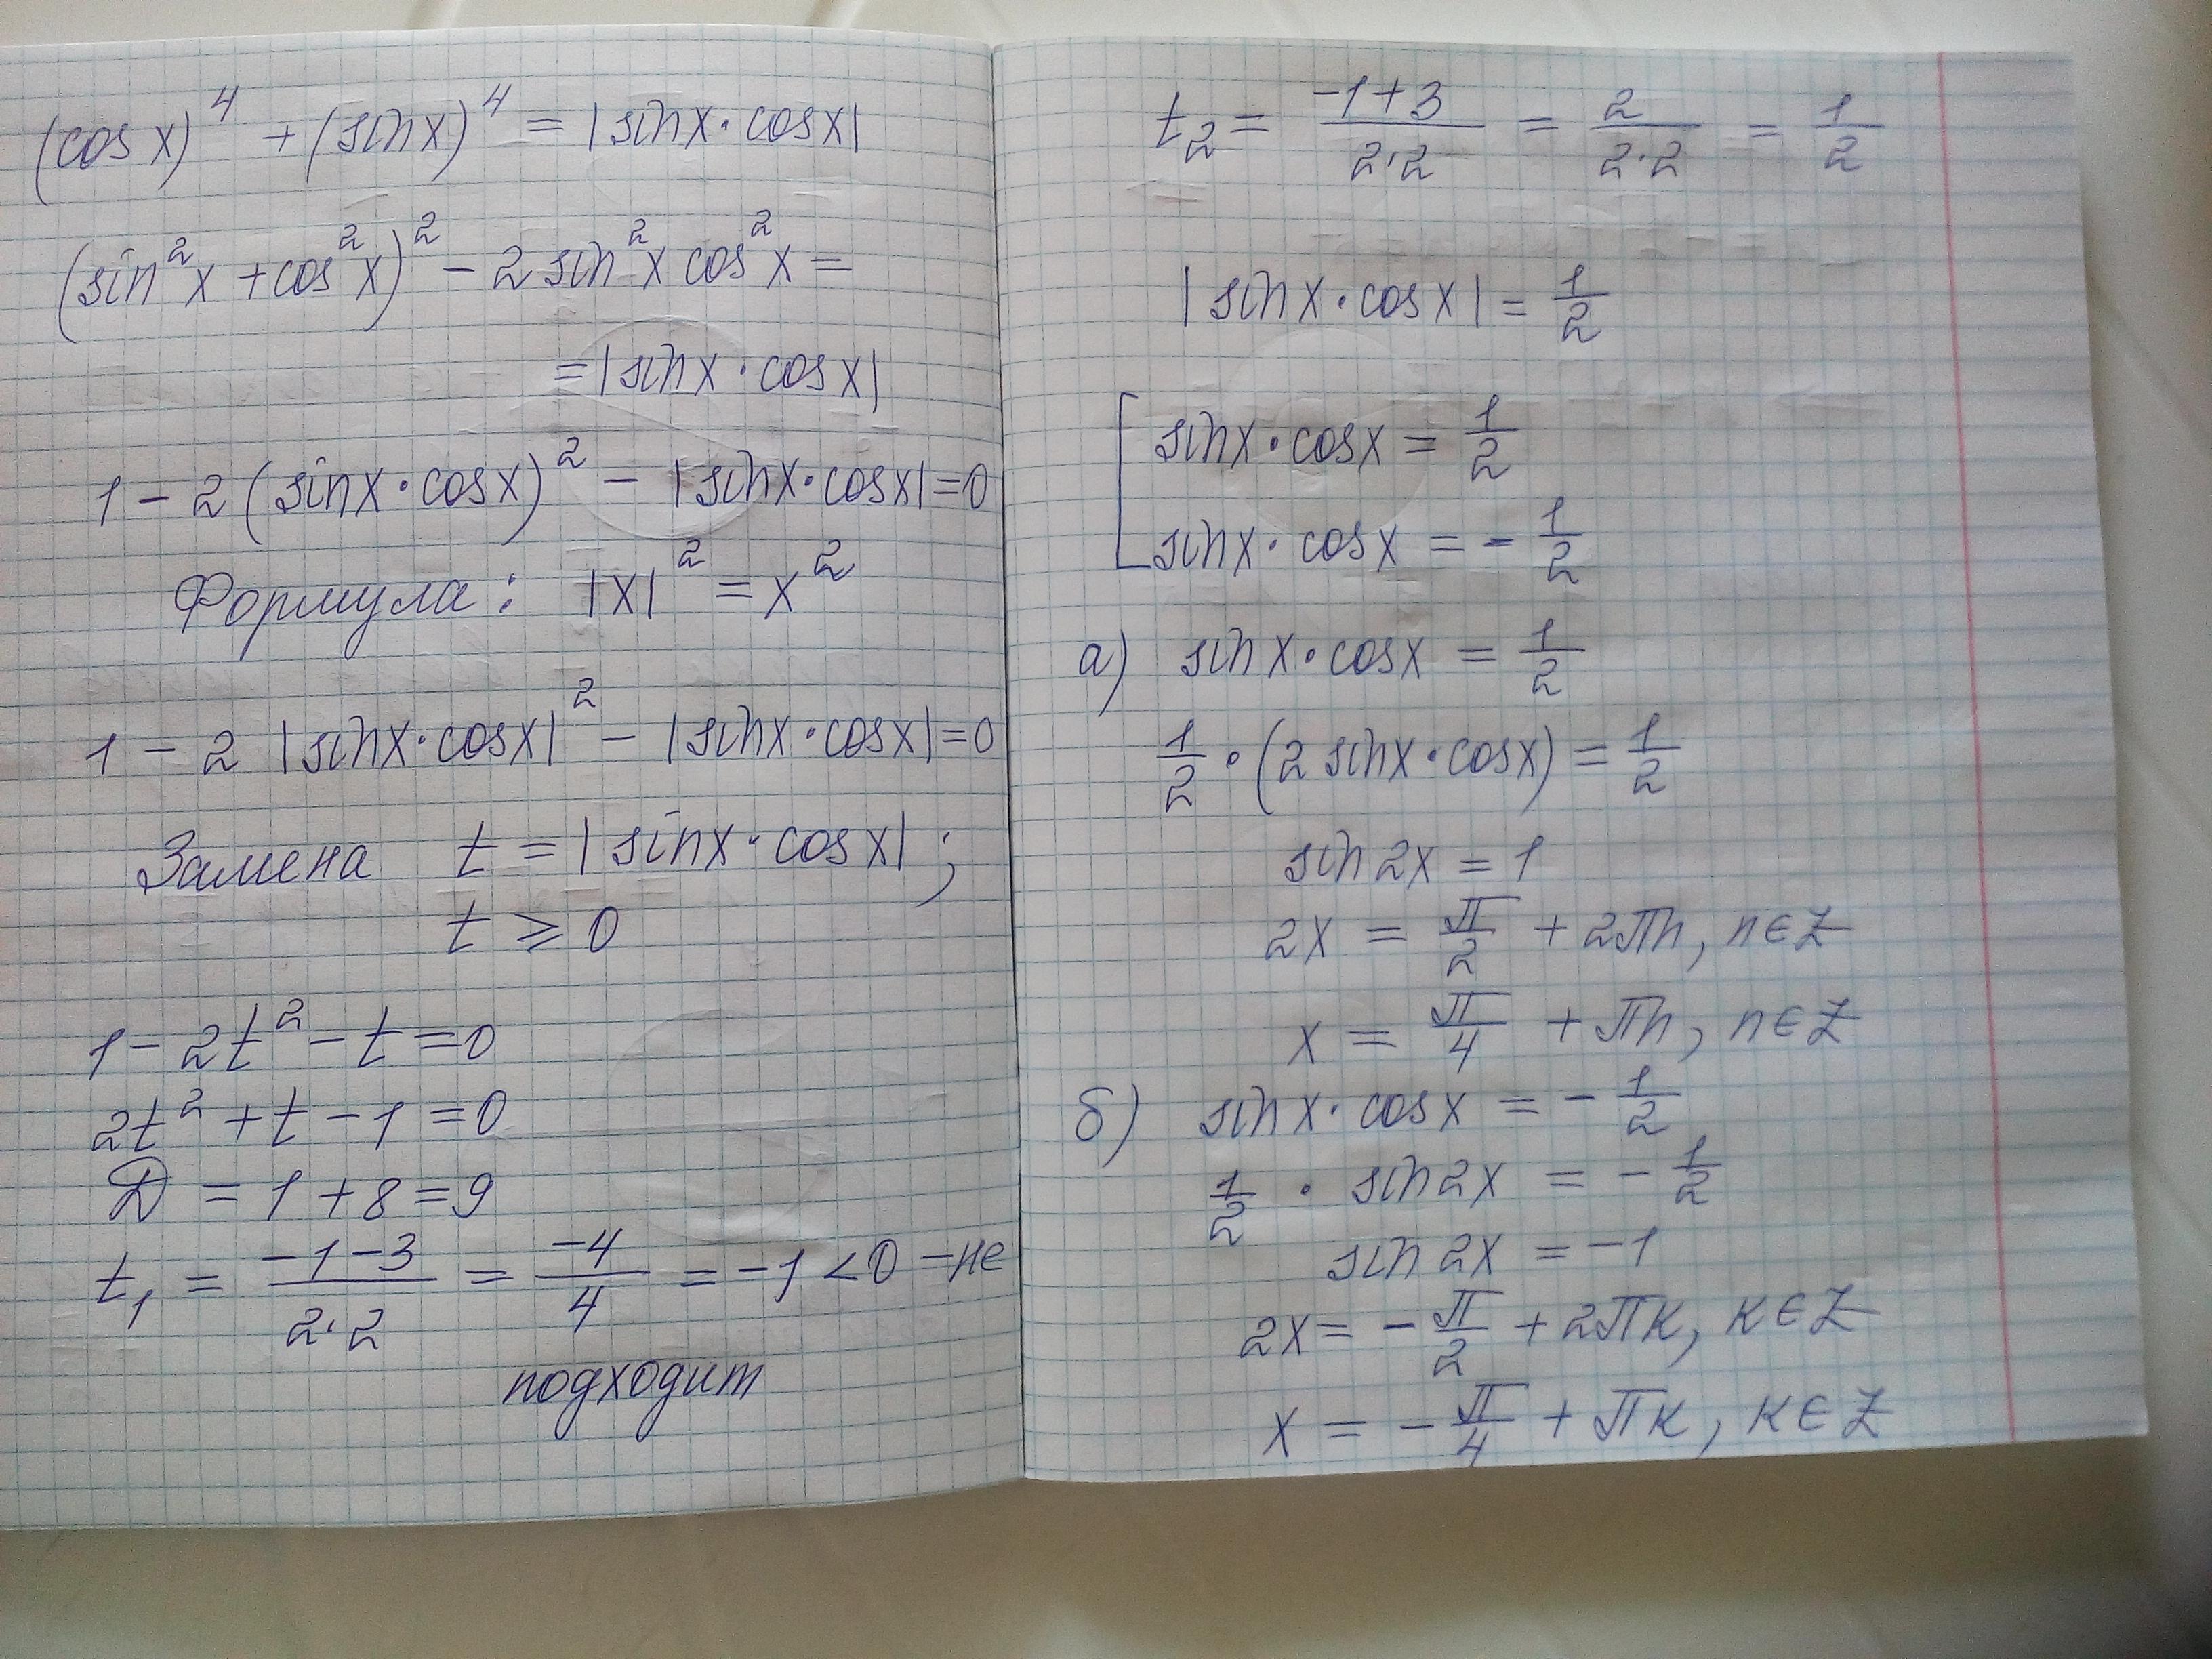 (cos x)⁴ + (sin x)⁴ = |sin x · cos x|
(sin²x + cos²x)² - 2 sin²x cos²x =
= |sin x · cos x|
1 - 2 (sin x · cos x)² - |sin x · cos x| = 0
Формула: |x|² = x²
1 - 2 |sin x · cos x|² - |sin x · cos x| = 0
Замена t = |sin x · cos x| ;
t ⩾ 0
1 - 2t² - t = 0
2t² + t - 1 = 0
D = 1 + 8 = 9
t₁ = (-1-3)/(2·2) = -4/4 = -1 < 0 - не
подходит
t₂ = (-1+3)/(2·2) = 2/(2·2) = 1/2
|sin x · cos x| = 1/2
[ sin x · cos x = 1/2
sin x · cos x = - 1/2
а) sin x · cos x = 1/2
1/2 · (2 sin x · cos x) = 1/2
sin 2x = 1
2x = π/2 + 2πn, n ∈ Z
x = π/4 + πn, n ∈ Z
б) sin x · cos x = - 1/2
1/2 · sin 2x = - 1/2
sin 2x = -1
2x = - π/2 + 2πк, к ∈ Z
x = - π/4 + πк, к ∈ Z